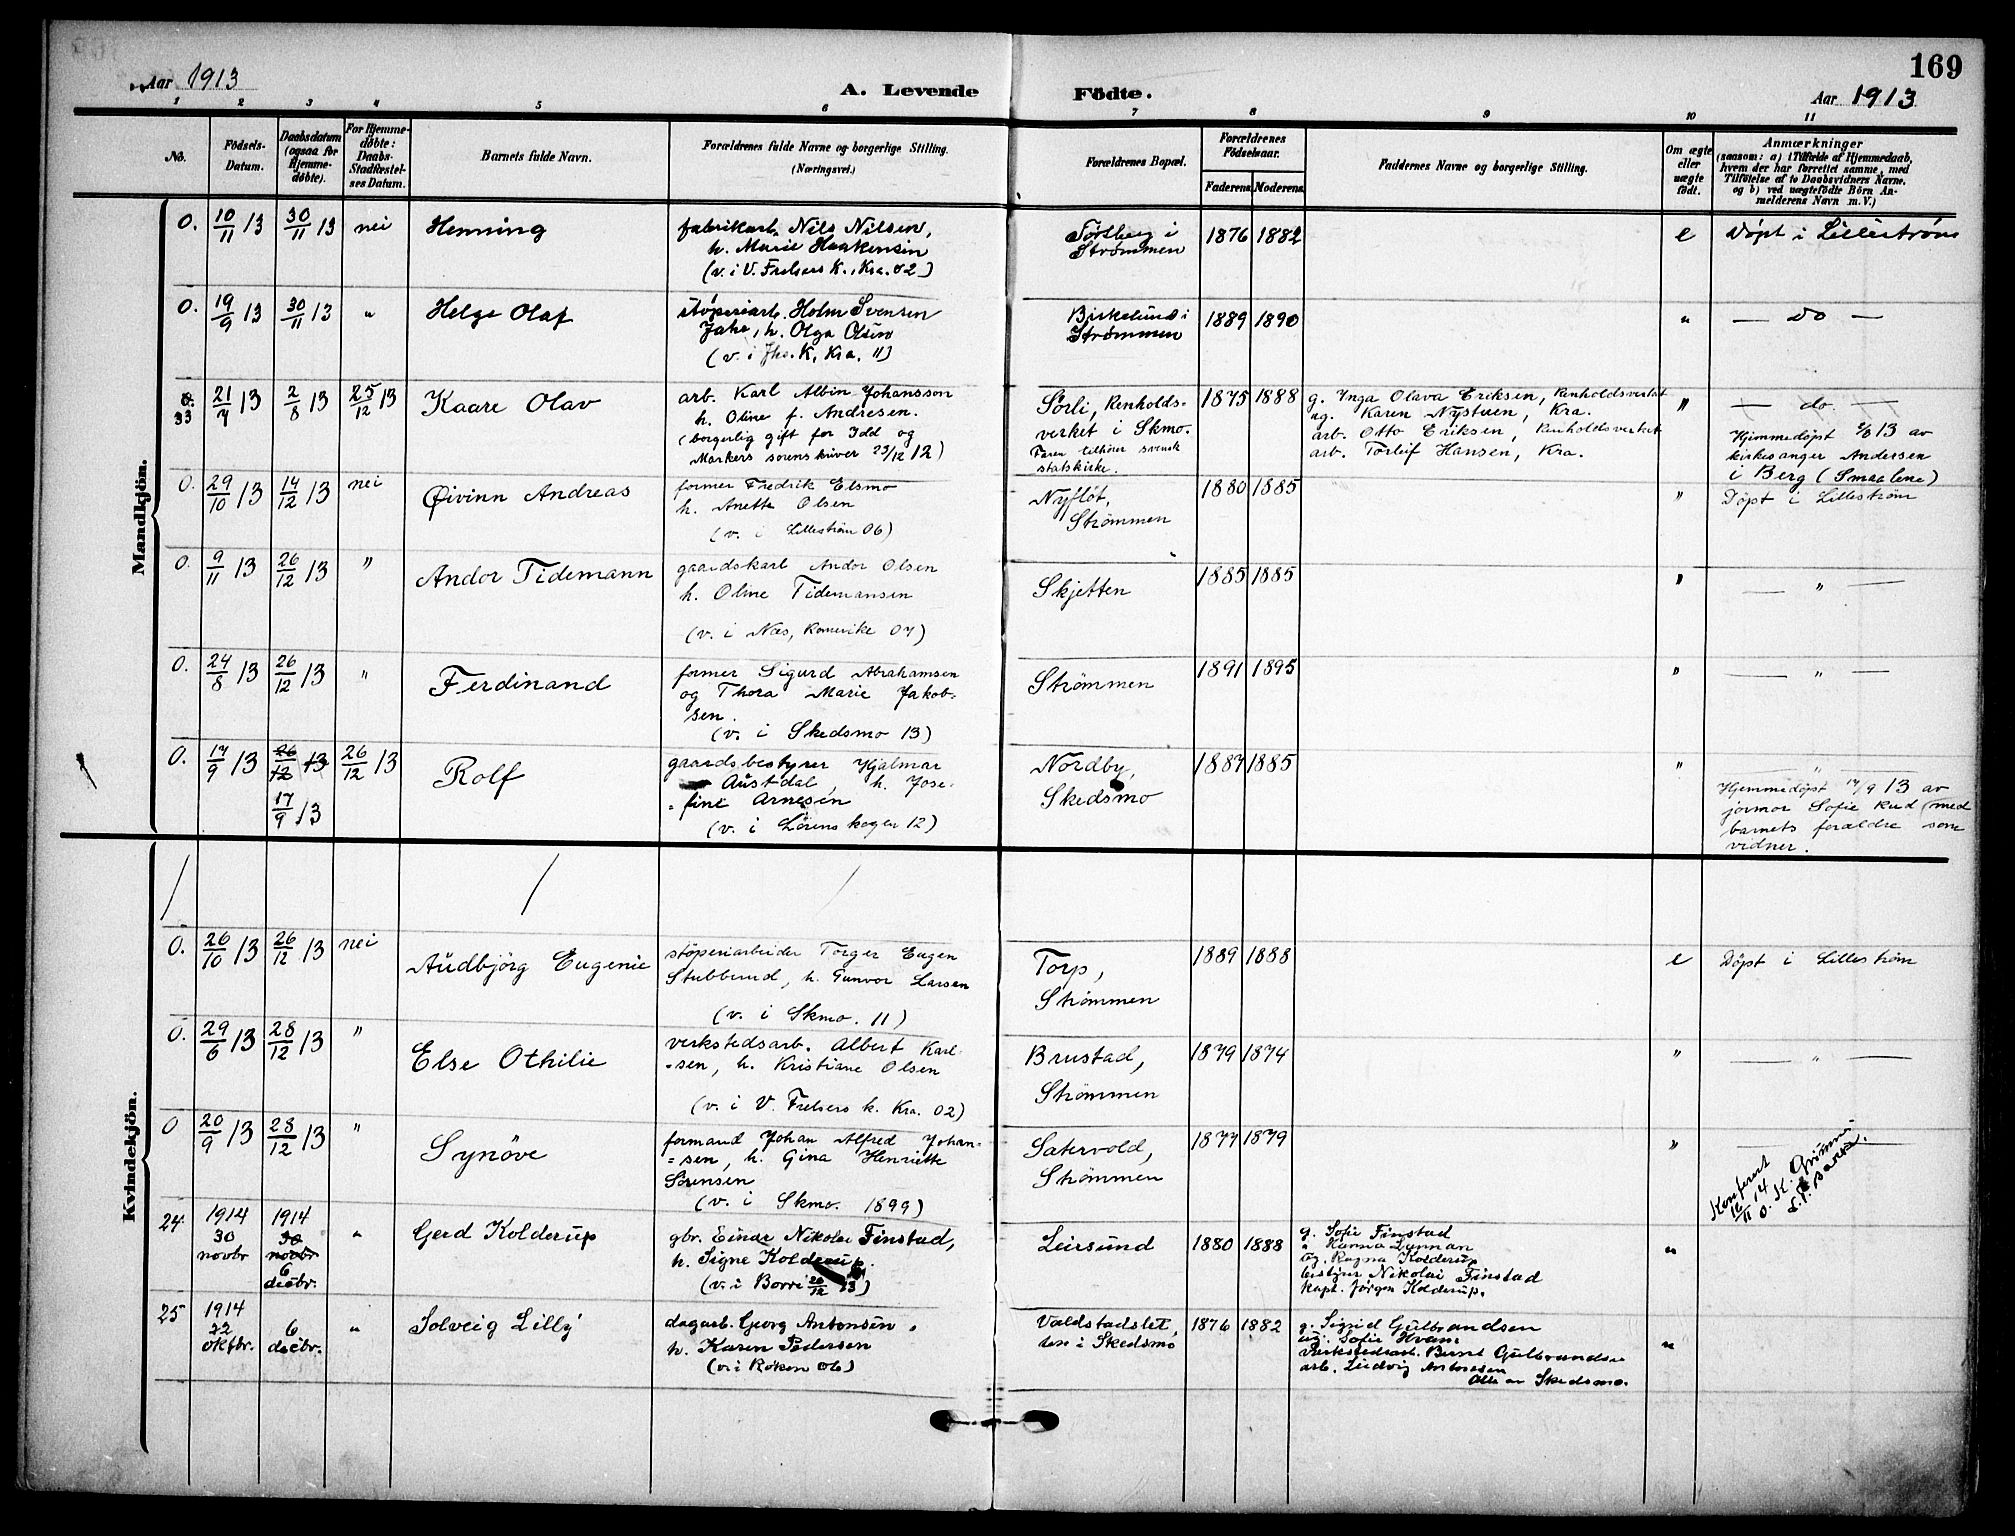 169
Aar 1913
A. Levende Födte.
Aar 1913
1 2 3 4 5 6 7 8 9 10 11
No.
Födsels-
Datum.
Daabsdatum
(ogsaa for
Hjemme-
døbte).
For Hjemme-
døbte:
Daabs-
Stadfæstel-
ses Datum.
Barnets fulde Navn.
Forældrenes fulde Navne og borgerlige Stilling.
(Næringsvei.)
Forældrenes Bopæl.
Forældrenes
Födselsaar.
Faderens. Moderens.
Faddernes Navne og borgerlige Stilling.
Om ægte
eller
uægte
födt.
Anmærkninger
(saasom: a) i Tilfælde af Hjemmedaab,
hvem der har forrettet samme, med
Tilföielse af to Daabsvidners Navne,
og b) ved uægtefödte Börn An-
melderens Navn m. V.)
Mandkjön.
0. 10/11 13 30/11 13 nei Henning
fabrikarb. Nils Nilsen,
h. Marie Haakensen
(v. i V. Frelsers K., Kra. 02)
i
Strømmen
1876 1882 e Døpt i Lilleström
0. 19/9 13 30/11 13 " Helge Olaf
støperiarb. Holm Svensen
Jahr, h. Olga Olsen
(v. i Jhs. K, Kra. 11)
Birkelund i
Strømmen
1889 1890 " — do —
0.
33 21/7 13 2/8 13 25/12 13 Kaare Olav
arb. Karl Albin Johansson
h. Oline f. Andresen.
(borgerlig gift for Idd og
Markers sorenskriver 23/12 12)
Sörli, Renholds-
verket i Skmo.
Faren tilhører svensk
statskirke.
1875 1888
g. Inga Olava Eriksen, Renholdsverket
ug. Karen Nystuen, Kra.
arb. Otto Eriksen, Renholdsverket
arb. Torleif Hansen, Kra.
" — do. —
Hjemmedøpt 2/8 13 av
kirkesanger Andersen
i Berg (Smaalene)
0. 29/10 13 14/12 13 nei Øivinn Andreas
former Fredrik Elsmo
h. Anette Olsen
(v. i Lilleström 06)
Nyfløt,
Strømmen
1880 1885 " Døpt i Lilleström
0. 9/11 13 26/12 13 " Andor Tidemann
gaardskarl Andor Olsen
h. Oline Tidemansen
(v. i Næs, Romerike 07)
Skjetten
1885 1885 " — " —
0. 24/8 13 26/12 13 " Ferdinand
former Sigurd Abrahamsen
og Thora Marie Jakob-
sen.
(v. i Skedsmo 13)
Strømmen
1891 1895 " — " —
0. 17/9 13 26/12 13 26/12 13 Rolf
17/9 13
gaardsbestyrer Hjalmar
Austdal, h. Jose-
=fine Arnesen
(v. i Lørenskogen 12)
Nordby,
Skedsmo
1887 1885 " — " —
Hjemmedøpt 17/9 13 av
jormor Sofie Rud (med
barnets forældre som
vidner.
Kvindekjön.
0. 26/10 13 26/12 13 nei Audbjörg Eugenie
støperiarbeider Torger Eugen
Stubberud, h. Gunvor Larsen
(v. i Skmo. 11)
Torp,
Strømmen
1889 1888 e Døpt i Lilleström
0. 29/6 13 28/12 13 " Else Othilie
verkstedsarb. Albert Karl-
=sen, h. Kristiane Olsen
(v. i V. Frelsers k. Kra. 02)
Brustad,
Strømmen
1879 1874 " — " —
0 20/9 13 28/12 13 " Synöve
formand Johan Alfred Johan-
=sen, h. Gina Henriette
Sörensen
(v. i Skmo. 1899)
Satervold,
Strømmen
1877 1879 "
24. 1914
30
novbr 1914
30
novbr
6
decbr. " Gerd Kolderup
gbr. Einar Nikolai Finstad,
h. Signe Kolderup.
(v. i Borre 26/12 13)
Leirsund
1880 1888
g. Sofie Finstad
" Kamma
ug. Ragna Kolderup
bestyrer Nikolai Finstad
Kapt. Jørgen Kolderup.
"
25 1914
22
oktbr. 6
decbr. " Solveig Lilly
dagarb. Georg Antonsen,
h. Karen Pedersen
(v. i Røken 06)
Valdstadslet,
ten i Skedsmo
1876 1882
g. Sigrid Gulbrandsen
ug. Sofie Hvam
Verkstedsarb. Bernt Gulbrandsen
arb. Ludvig Antonsen
Alle av Skedsmo.
"